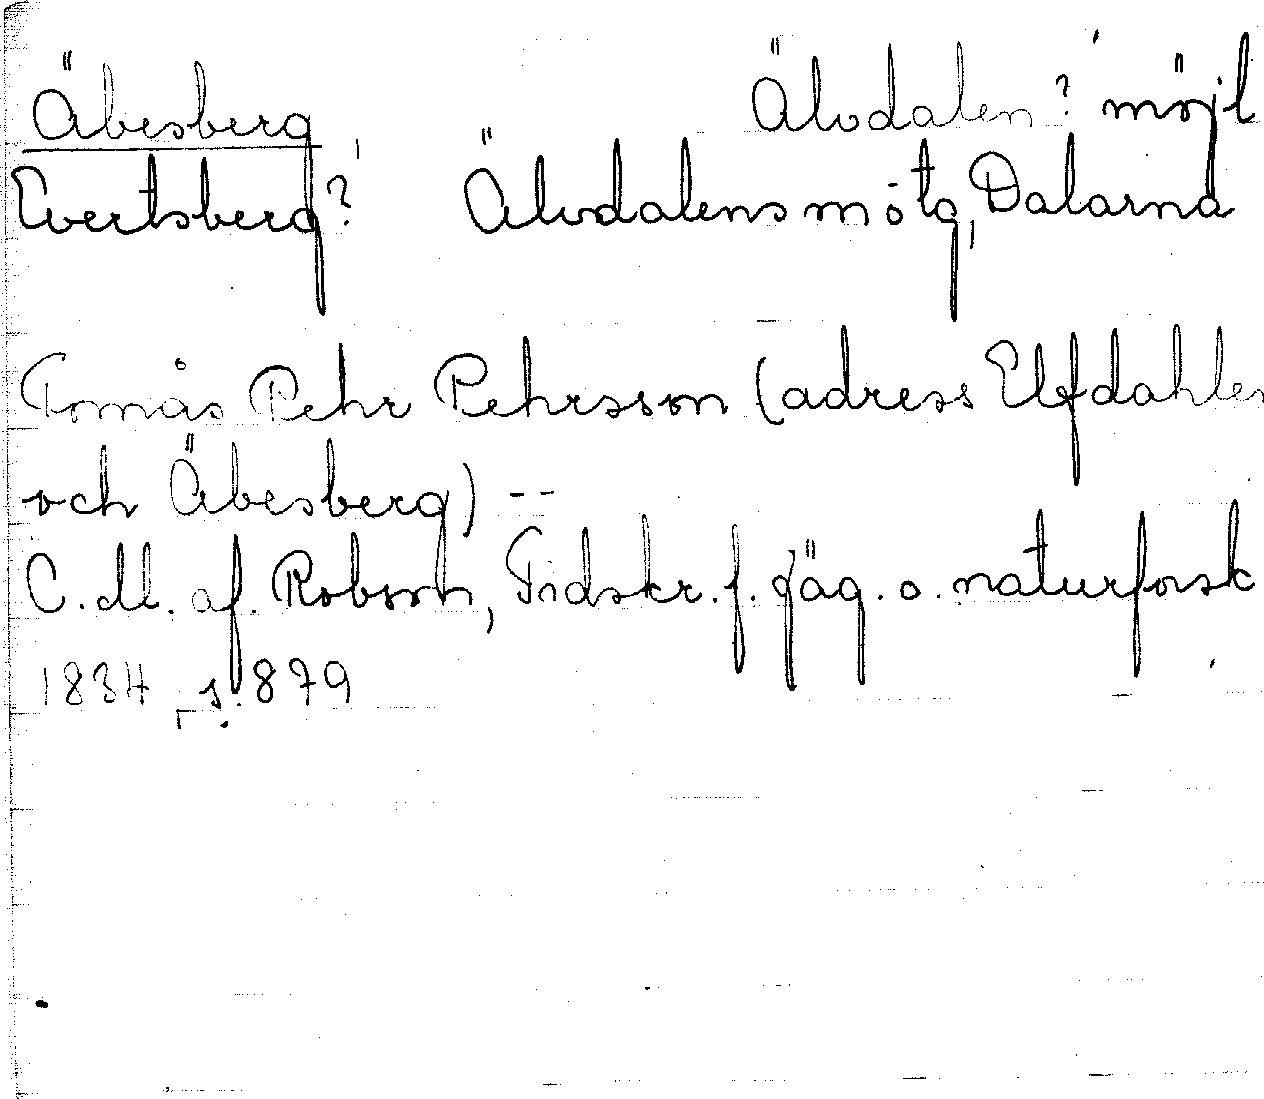 Äbesberg Älvdalen? möjl
Evertsberg? Älvdalens m ö tg, Dalarna
Tomås Pehr Pehrsson (adress Elfdahlen
och Äbesberg) --
C. M. af. Robson, Tidskr. f. jäg. o. naturforsk
1834 s. 879